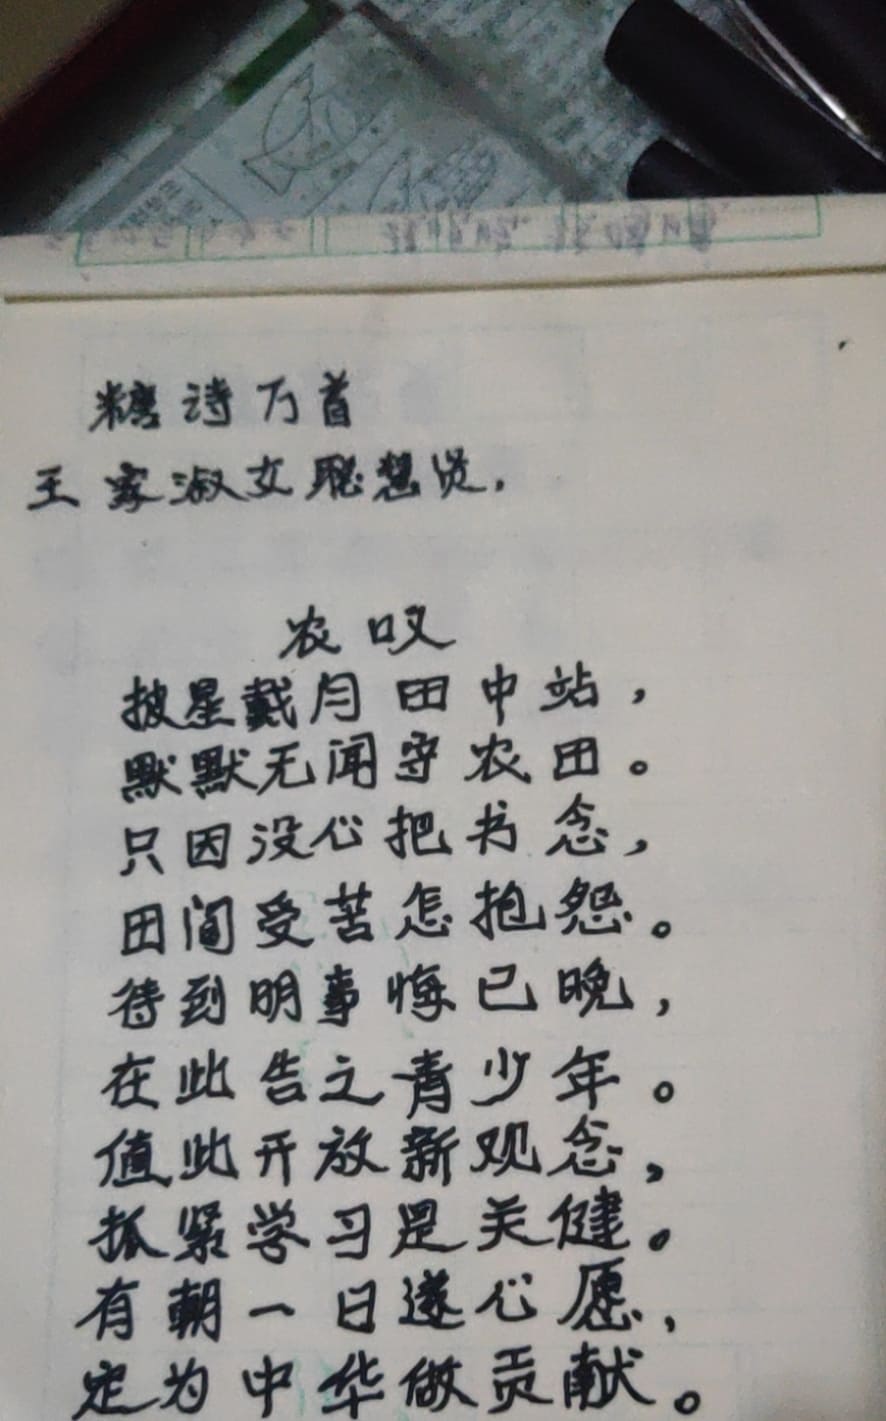 糖诗万首
王家淑女聪慧贤.
农叹
披星戴月田中站，
默默无闻守农田。
只因没心把书念，
田间受苦怎抱怨。
待到明事悔已晚，
在此告之青少年。
值此开放新观念，
抓紧学习是关健。
有朝一日遂心愿，
定为中华做贡献。